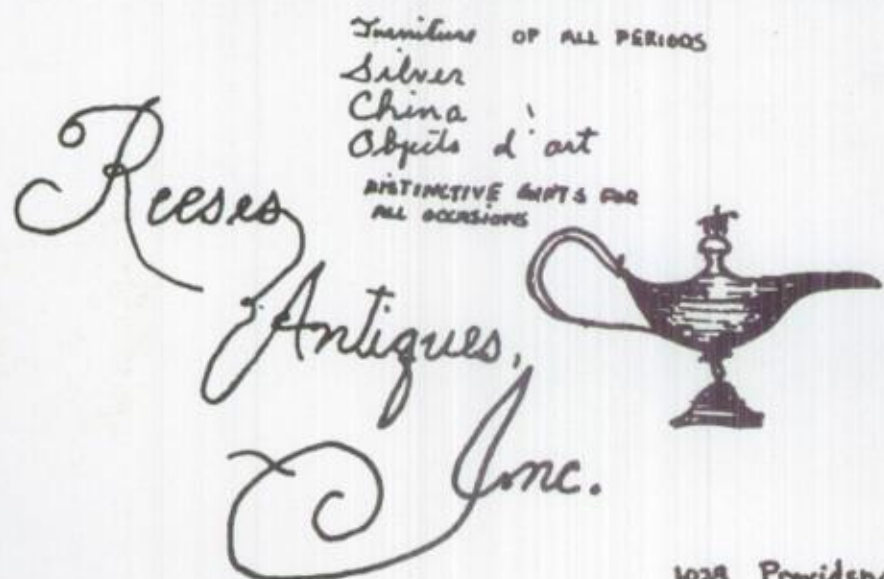 Furniture OF ALL PERIODS
Silver
China
Objets d'art
DISTINCTIVE GIFTS FOR
ALL OCCASIONS
Reeses
Antiques,
Inc.